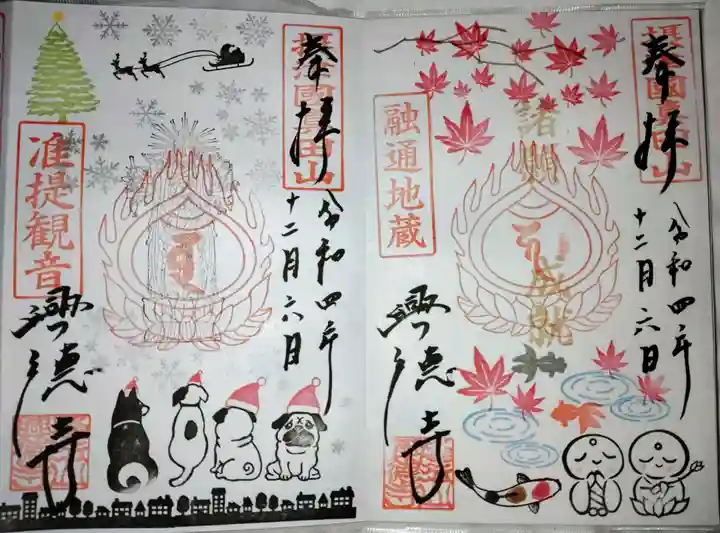 奉拝
摂津國真田山
令和四年
十二月六日
准提観音
興徳寺
奉拝
摂津國真田山
令和四年
十二月六日
諸願成就
融通地蔵
興徳寺